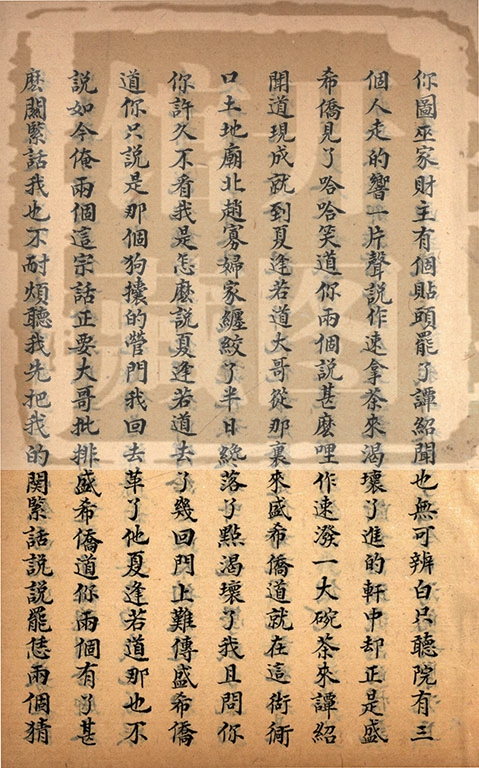 你圖巫家財主有個貼頭罷了譚紹聞也無可辨白只聽院有三
個人走的響一片聲説作速拿茶來渴壞了進的軒中却正是盛
希僑見了哈哈笑道你兩個説甚麽哩作速潑一大碗茶來譚紹
聞道現成就到夏逢若道大哥從那裏來盛希僑道就在這衚衕
口土地廟北趙寡婦家纏絞了半日纔落了點渴壞了我且問你
你許久不看我是怎麽説夏逢若道去了幾回門上難傳盛希僑
道你只説是那個狗攮的營門我回去革了他夏逢若道那也不
説如今俺兩個這宗話正要大哥批排盛希僑道你兩個有了甚
麽關緊話我也不耐煩聽我先把我的関緊話説説罷恁兩個猜